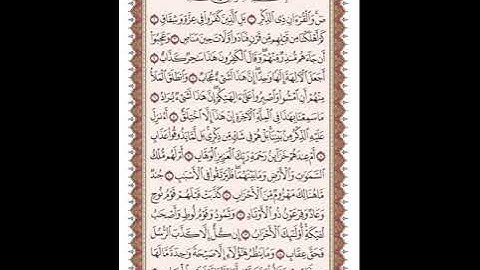 صٓ ۚ وَٱلْقُرْءَانِ ذِى ٱلذِّكْرِ ١ بَلِ ٱلَّذِينَ كَفَرُوا۟ فِى عِزَّةٍ وَشِقَاقٍ ٢
كَمْ أَهْلَكْنَا مِن قَبْلِهِم مِّن قَرْنٍ فَنَادَوا۟ وَّلَاتَ حِينَ مَنَاصٍ ٣ وَعَجِبُوٓا۟
أَن جَآءَهُم مُّنذِرٌ مِّنْهُمْ ۖ وَقَالَ ٱلْكَٰفِرُونَ هَٰذَا سَٰحِرٌ كَذَّابٌ ٤
أَجَعَلَ ٱلْـَٔالِهَةَ إِلَٰهًا وَٰحِدًا ۖ إِنَّ هَٰذَا لَشَىْءٌ عُجَابٌ ٥ وَٱنطَلَقَ ٱلْمَلَأُ
مِنْهُمْ أَنِ ٱمْشُوا۟ وَٱصْبِرُوا۟ عَلَىٰٓ ءَالِهَتِكُمْ ۖ إِنَّ هَٰذَا لَشَىْءٌ يُرَادُ ٦
مَا سَمِعْنَا بِهَٰذَا فِى ٱلْمِلَّةِ ٱلْـَٔاخِرَةِ إِنْ هَٰذَآ إِلَّا ٱخْتِلَٰقٌ ٧ أَءُنزِلَ
عَلَيْهِ ٱلذِّكْرُ مِنۢ بَيْنِنَا ۚ بَلْ هُمْ فِى شَكٍّ مِّن ذِكْرِى ۖ بَل لَّمَّا يَذُوقُوا۟ عَذَابِ
٨ أَمْ عِندَهُمْ خَزَآئِنُ رَحْمَةِ رَبِّكَ ٱلْعَزِيزِ ٱلْوَهَّابِ ٩ أَمْ لَهُم مُّلْكُ
ٱلسَّمَٰوَٰتِ وَٱلْأَرْضِ وَمَا بَيْنَهُمَا ۖ فَلْيَرْتَقُوا۟ فِى ٱلْأَسْبَٰبِ ١٠ جُندٌ
مَّا هُنَالِكَ مَهْزُومٌ مِّنَ ٱلْأَحْزَابِ ١١ كَذَّبَتْ قَبْلَهُمْ قَوْمُ نُوحٍ
وَعَادٌ وَفِرْعَوْنُ ذُو ٱلْأَوْتَادِ ١٢ وَثَمُودُ وَقَوْمُ لُوطٍ وَأَصْحَٰبُ
لْـَٔيْكَةِ ۚ أُو۟لَٰٓئِكَ ٱلْأَحْزَابُ ١٣ إِن كُلٌّ إِلَّا كَذَّبَ ٱلرُّسُلَ
فَحَقَّ عِقَابِ ١٤ وَمَا يَنظُرُ هَٰٓؤُلَآءِ إِلَّا صَيْحَةً وَٰحِدَةً مَّا لَهَا